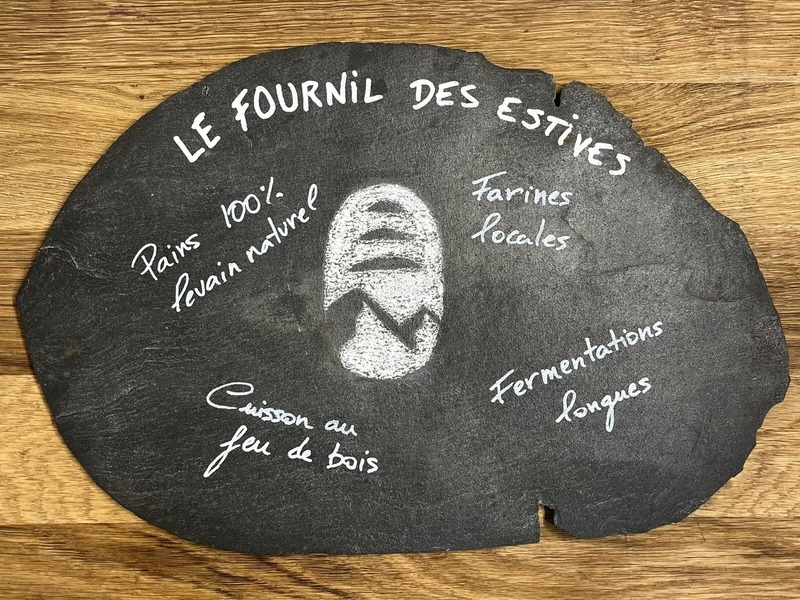 LE FOURNIL DES ESTIVES
Pains 100%
levain naturel
Farines
locales
Cuisson au
feu de bois
Fermentations
longues